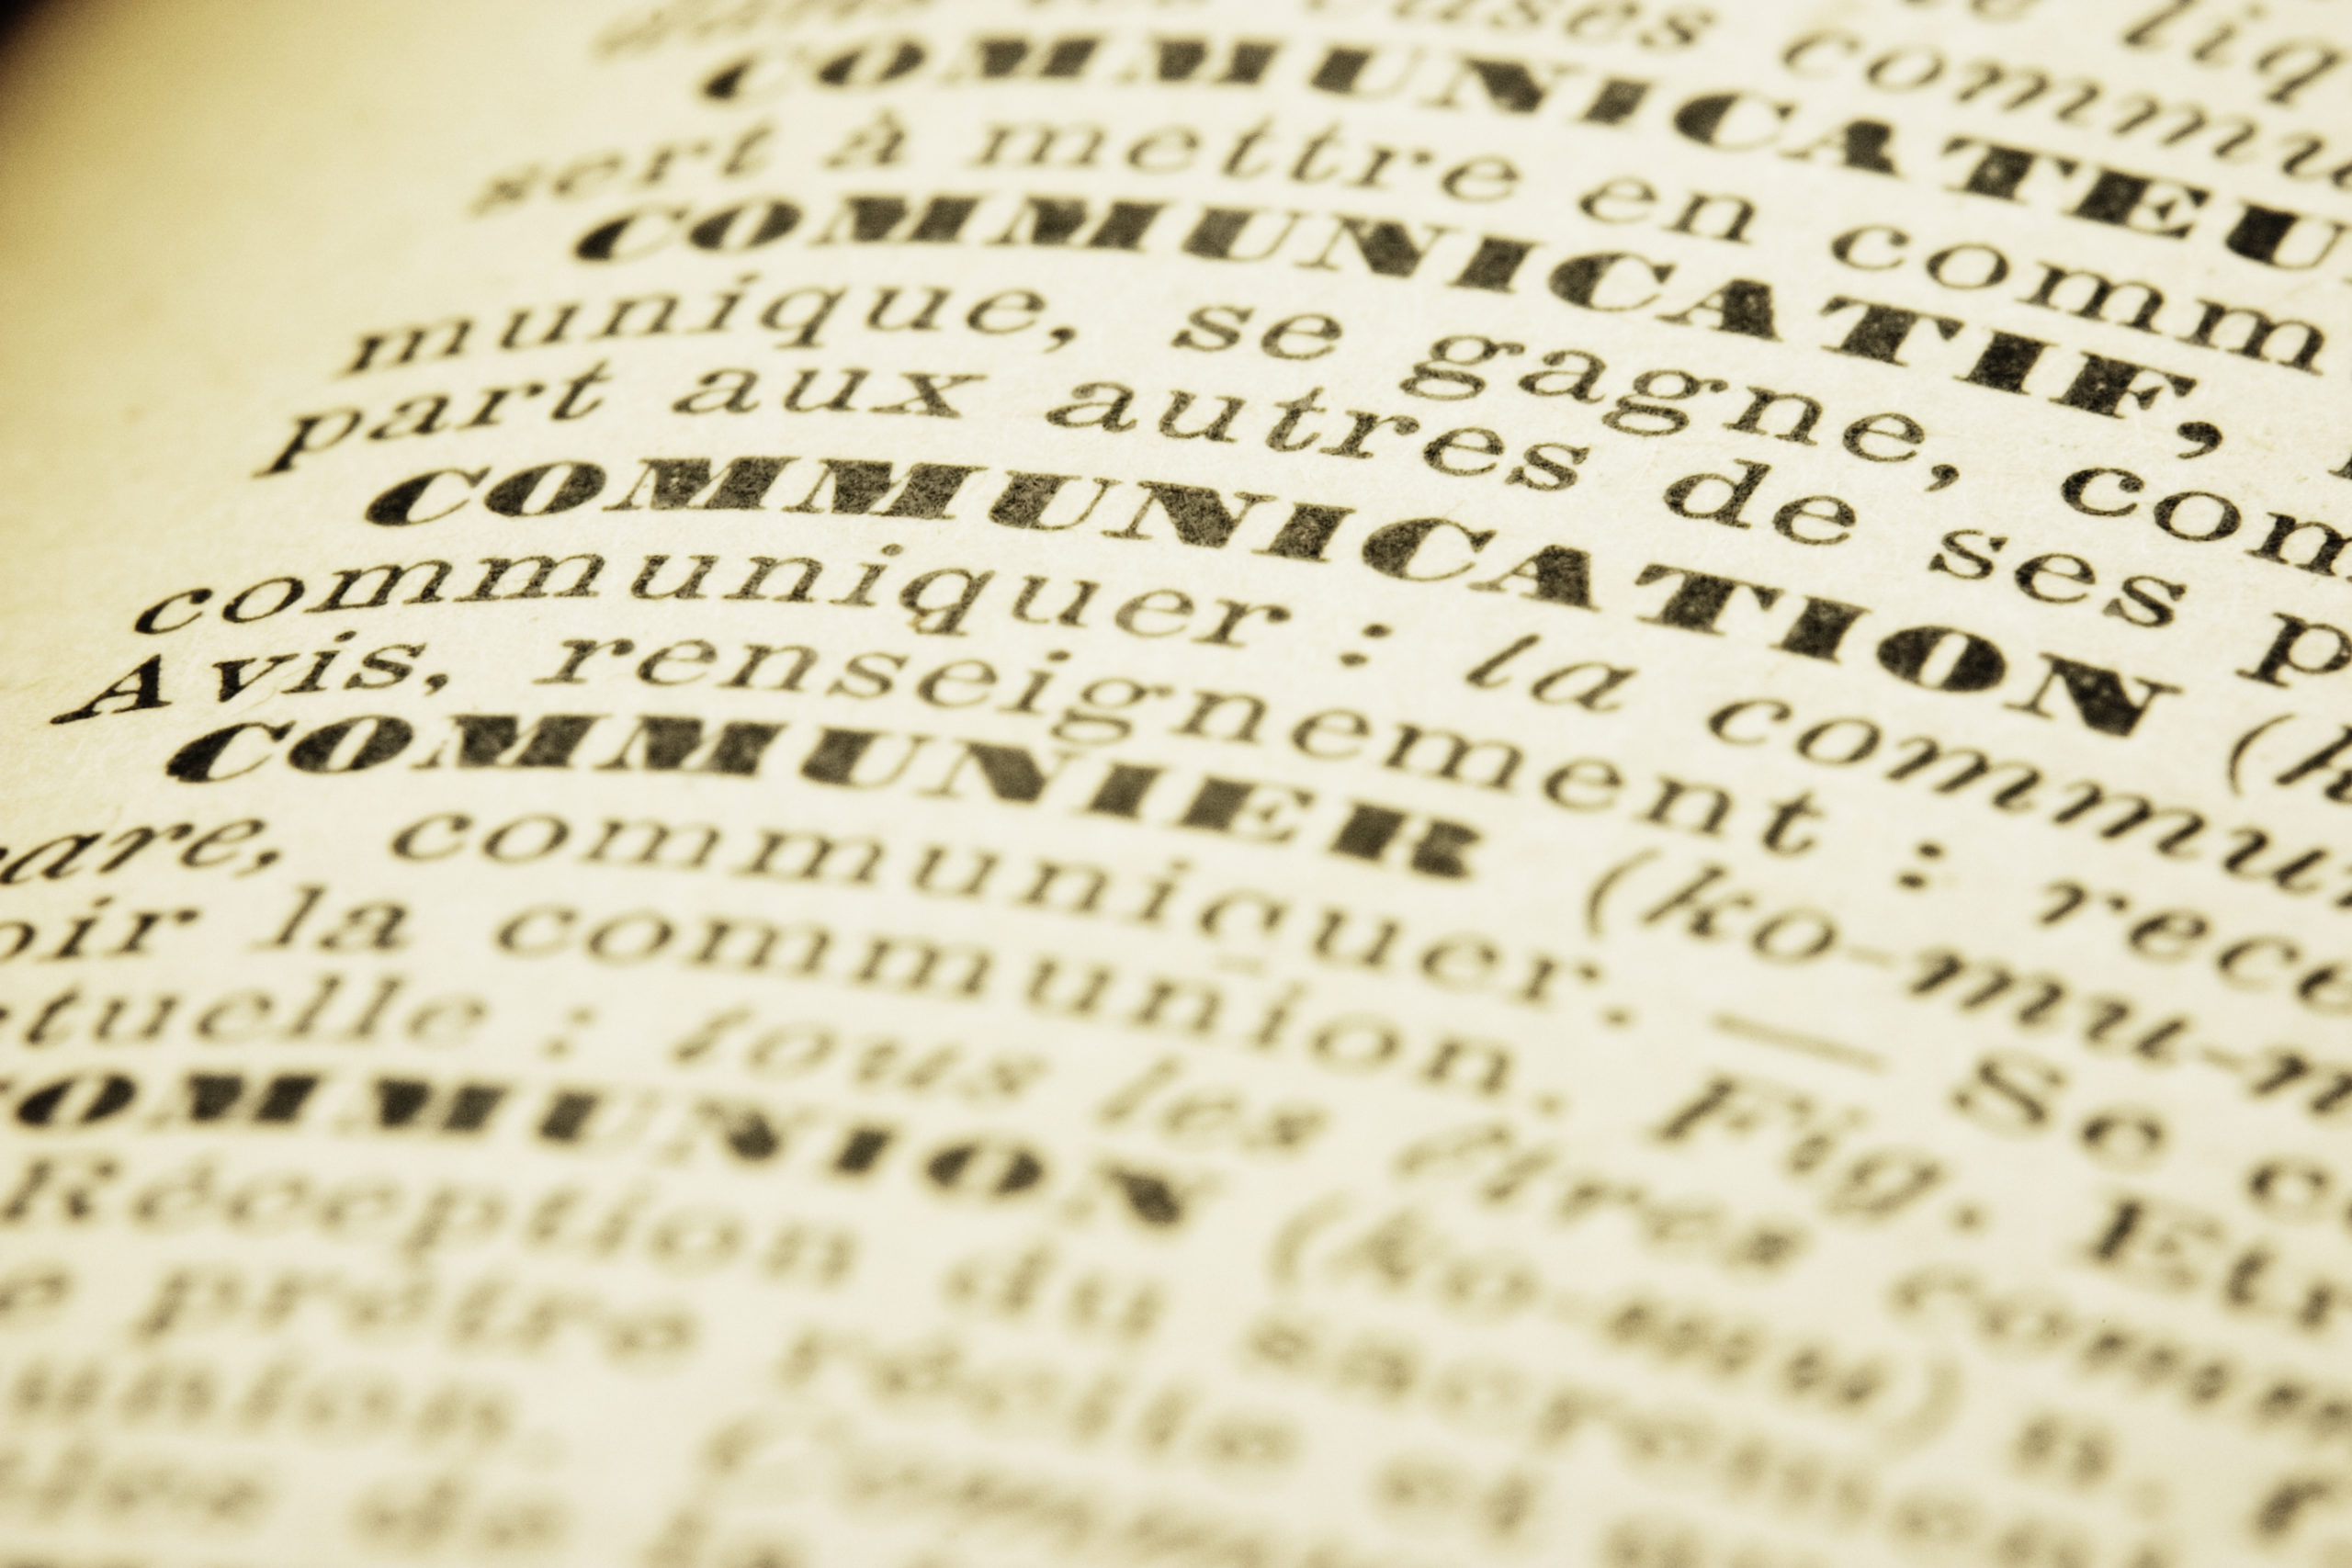 dans les vases commu
COMMUNICATEU
sert à mettre en comm
COMMUNICATIF,
munique, se gagne, com
part aux autres de ses p
COMMUNICATION (k
communiquer : la commun
Avis, renseignement : rece
COMMUNIER (ko-mu-n
are, communiquer. — Se c
oir la communion. Fig. Etr
tuelle : tous les êtres comm
OMMUNION (ko-mu) n.
Réception du sacremen
e prêtre récite et
union.
de la